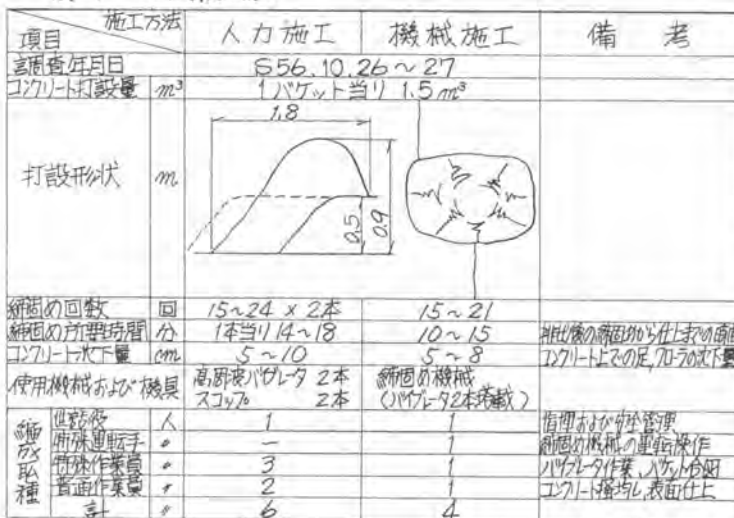 項目 施工方法 人力施工 機械施工 備考
調査年月日 S56.10.26~27
コンクリート打設量 m³ 1バケット当り 1.5m³
打設形状 m
1.8
0.5
0.9
締固め回数 回 15~24 x 2本 15~21
締固め所要時間 分 1本当り14~18 10~15 排出後の締固めから仕上までの
コンクリート沈下量 cm 5~10 5~8 コンクリート上での足,クローラの沈下量
使用機械および機具 高周波バイブレータ 2本 締固め機械
スコップ 2本 (バイブレータ2本搭載)
世話役 人 1 1 指揮および安全管理
特殊運転手 〃 ー 1 締固め機械の運転操作
特殊作業員 〃 3 1 バイブレータ作業,バケット合図
普通作業員 〃 2 1 コンクリート掻均し,表面仕上
計 〃 6 4